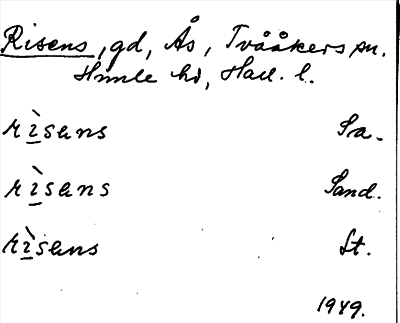 Risens, gd, Ås, Tvååkers sn.
Himle hd, Hall. l.
rìsens Sa.
rìsens Sand.
rìsens St.
1949.